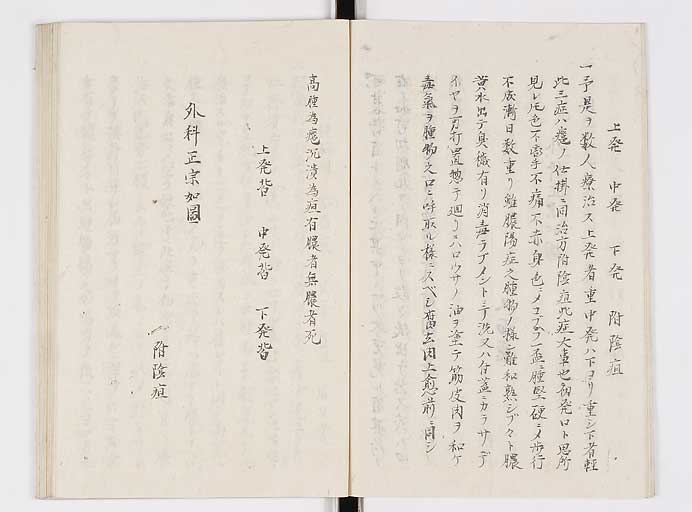 上発 中発 下発 附陰疽
一予是ヲ数人療治ス上発者重中発ハ下ヨリ重シ下者軽
此三症ハ癰ノ仕掛ニ同治方附陰疽此症大事也初発ロト思所
見レ𪜈色不常手不痛不赤身色ニメコブノ一盃ニ腫堅硬ニメ歩行
不成漸日数重リ雖膿陽症之腫物ノ様ニ難和熟シブ々ト膿
黄水出テ臭穢有リ消毒ラブメントニテ洗又ハ付薬ニカラサデ
イヤヲ可打置惣テ廻リハロウサノ油ヲ塗テ筋皮肉ヲ和ケ
毒氣ヲ腫物之口ニ呼取ル様ニスベシ肉上愈前ニ同シ
高腫為癰沉潰為疽有膿者無膿者死
上発背 中発背 下発背
外科正宗如圖
附陰疽